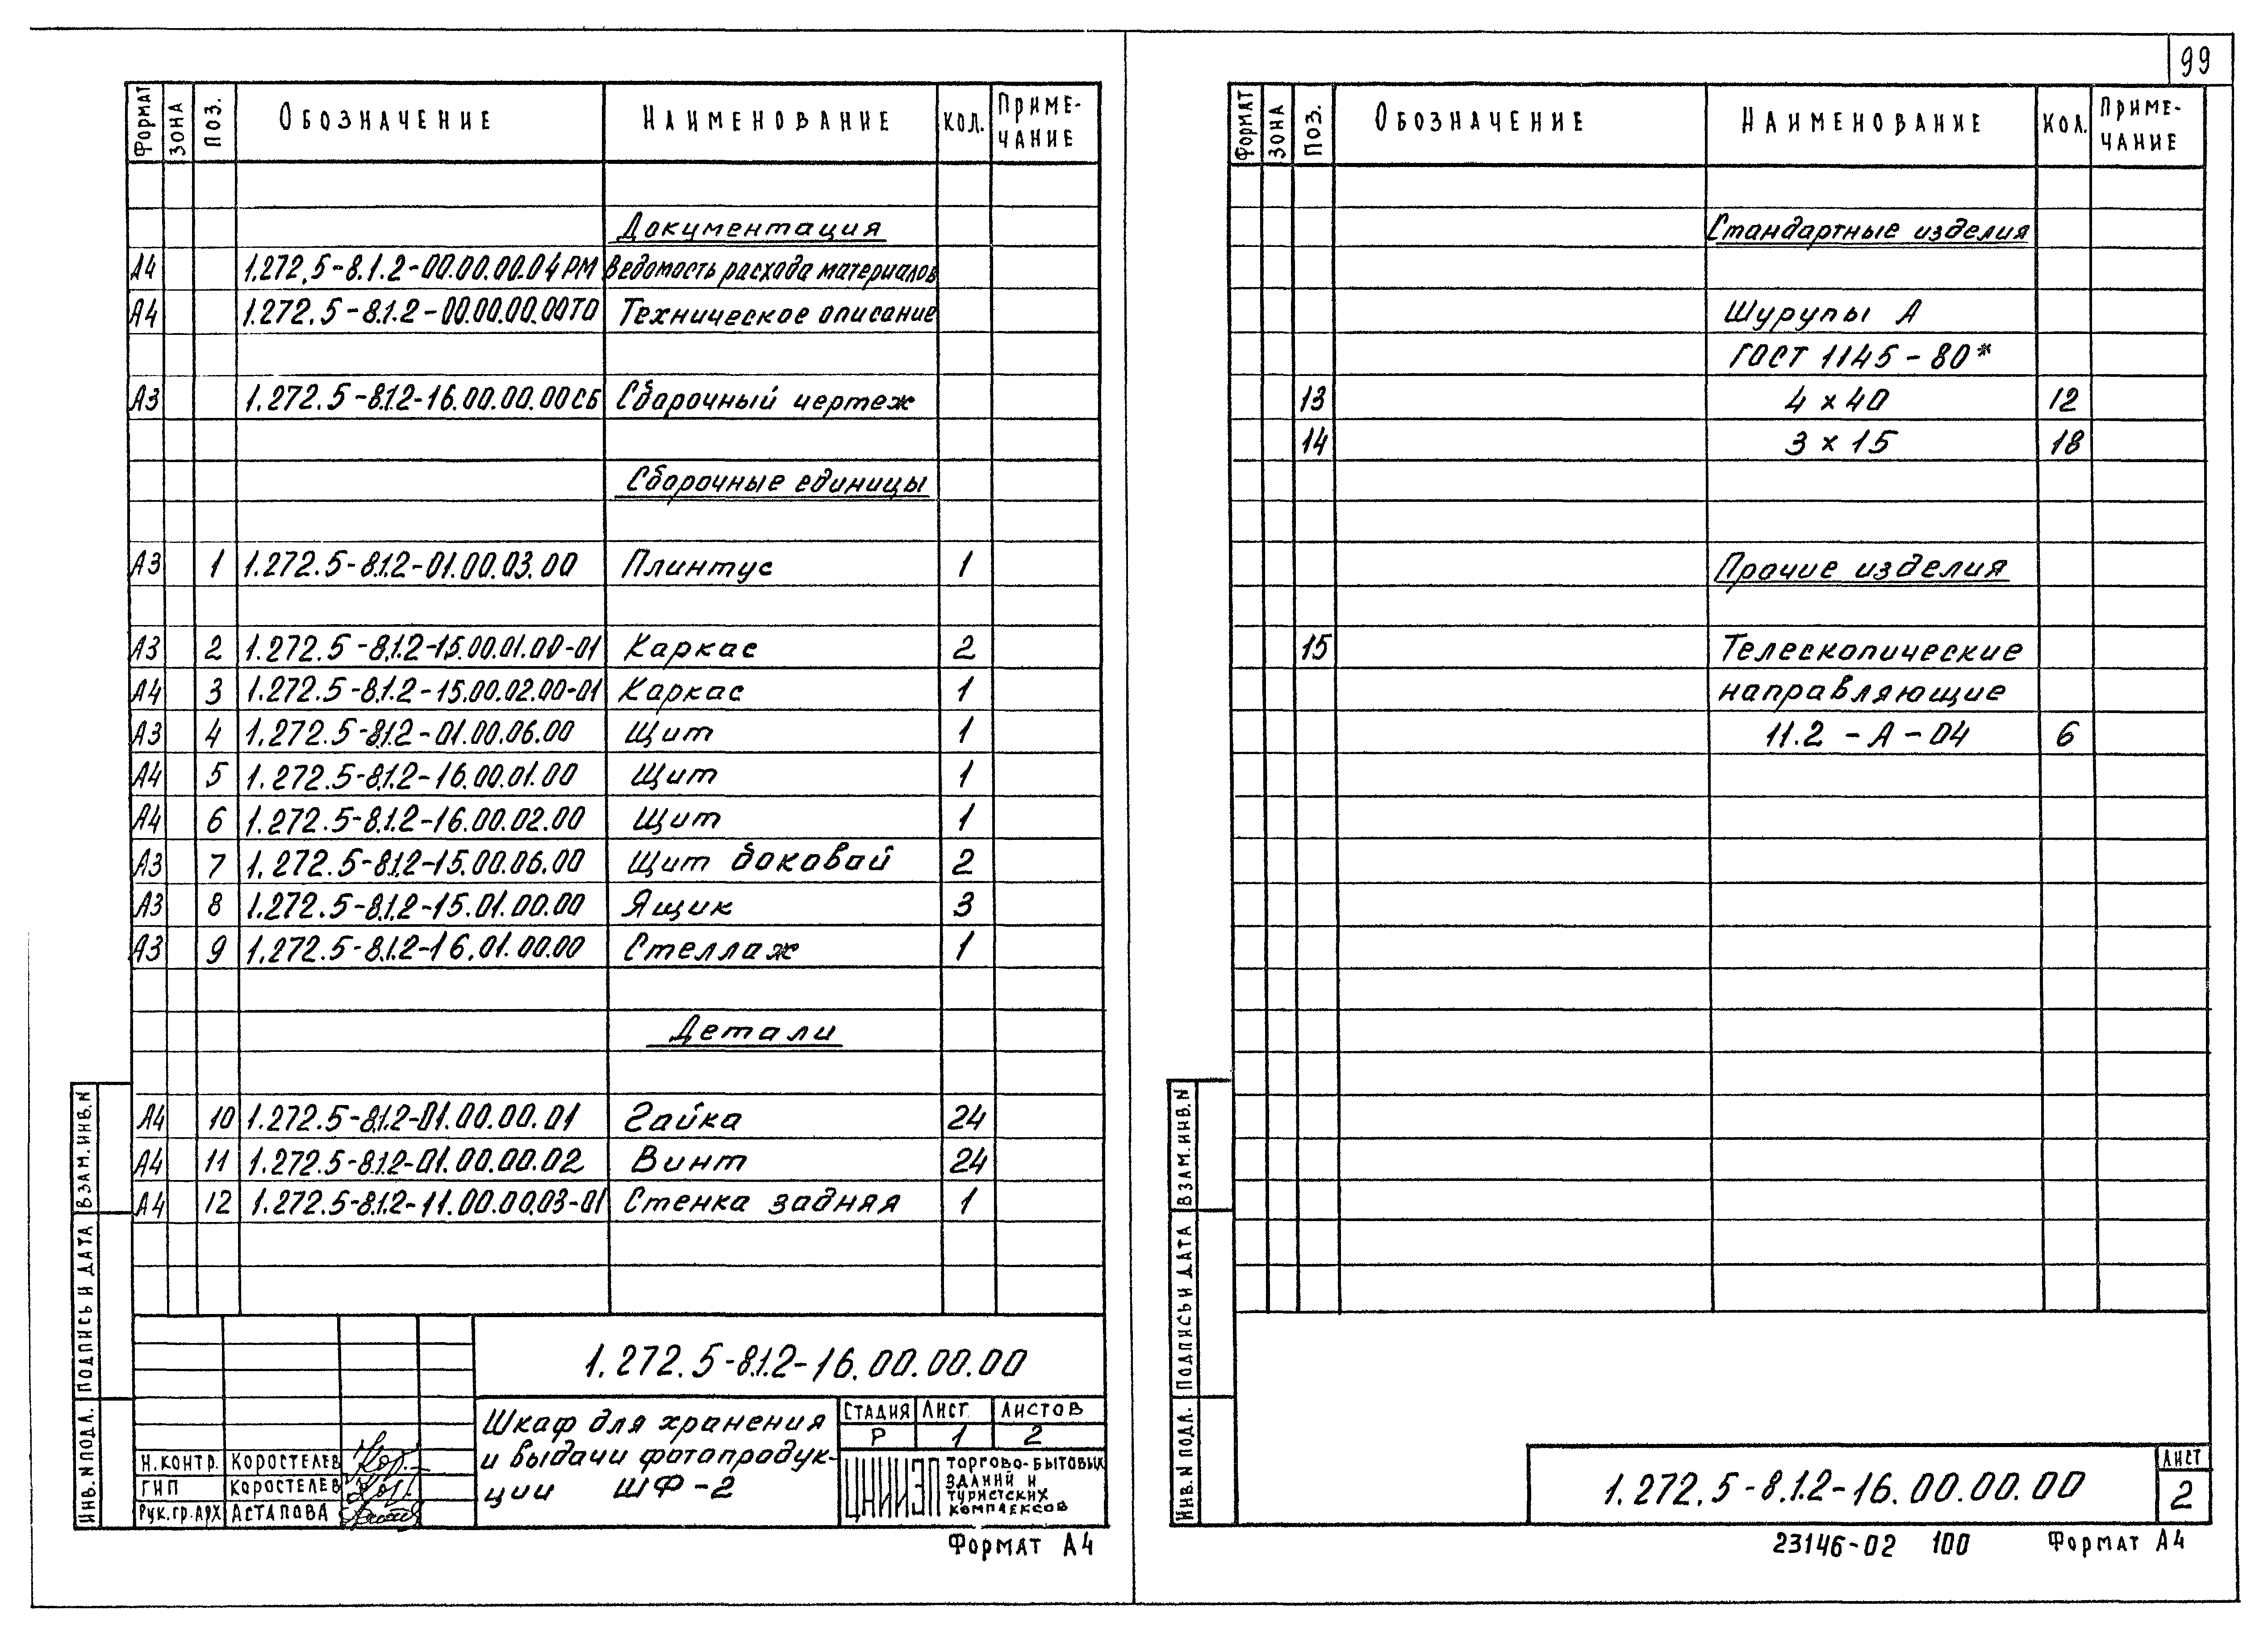 99
ФОРМАТ ЗОНА ПОЗ. ОБОЗНАЧЕНИЕ НАИМЕНОВАНИЕ КОЛ. ПРИМЕ-
ЧАНИЕ
Документация
А4 1.272.5-8.1.2-00.00.00.04РМ Ведомость расхода материалов
А4 1.272.5-8.1.2-00.00.00.00ТО Техническое описание
А3 1.272.5-8.1.2-16.00.00.00СБ Сборочный чертеж
Сборочные единицы
А3 1 1.272.5-8.1.2-01.00.03.00 Плинтус 1
А3 2 1.272.5-8.1.2-15.00.01.00-01 Каркас 2
А4 3 1.272.5-8.1.2-15.00.02.00-01 Каркас 1
А3 4 1.272.5-8.1.2-01.00.06.00 Щит 1
А4 5 1.272.5-8.1.2-16.00.01.00 Щит 1
А4 6 1.272.5-8.1.2-16.00.02.00 Щит 1
А3 7 1.272.5-8.1.2-15.00.06.00 Щит боковой 2
А3 8 1.272.5-8.1.2-15.01.00.00 Ящик 3
А3 9 1.272.5-8.1.2-16.01.00.00 Стеллаж 1
Детали
А4 10 1.272.5-8.1.2-01.00.00.01 Гайка 24
А4 11 1.272.5-8.1.2-01.00.00.02 Винт 24
А4 12 1.272.5-8.1.2-11.00.00.03-01 Стенка задняя 1
ВЗАМ.ИНВ.N
ПОДПИСЬ И ДАТА
ИНВ.N ПОДЛ.
1.272.5-8.1.2-16.00.00.00
Шкаф для хранения
и выдачи фотопродук-
ции ШФ-2
СТАДИЯ ЛИСТ ЛИСТОВ
Р 1 2
ЦНИИЭП ТОРГОВО-БЫТОВЫХ
ЗДАНИЙ И
ТУРИСТСКИХ
КОМПЛЕКСОВ
Н.КОНТР. КОРОСТЕЛЕВ
ГИП КОРОСТЕЛЕВ
РУК.ГР.АРХ АСТАПОВА
ФОРМАТ А4
ФОРМАТ ЗОНА ПОЗ. ОБОЗНАЧЕНИЕ НАИМЕНОВАНИЕ КОЛ. ПРИМЕ-
ЧАНИЕ
Стандартные изделия
Шурупы А
ГОСТ 1145-80*
13 4 х 40 12
14 3 х 15 18
Прочие изделия
15 Телескопические
направляющие
11.2 - А - 04 6
ВЗАМ.ИНВ.N
ПОДПИСЬ И ДАТА
ИНВ.N ПОДЛ.
1.272.5-8.1.2-16.00.00.00
ЛИСТ
2
23146-02 100 ФОРМАТ А4